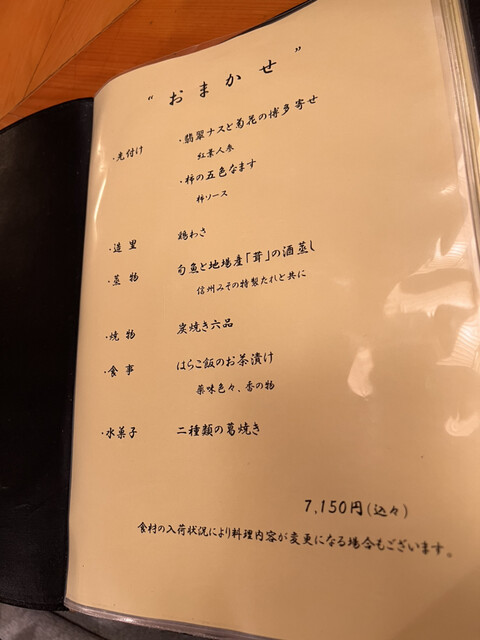 "おまかせ"
・先付け ・翡翠ナスと菊花の博多寄せ
紅葉人参
・柿の五色なます
柿ソース
・造里 鶏わさ
・蒸物 旬魚と地場産「茸」の酒蒸し
信州みその特製たれと共に
・焼物 炭焼き六品
・食事 はらこ飯のお茶漬け
薬味色々、香の物
・水菓子 二種類の葛焼き
7,150円(込々)
食材の入荷状況により料理内容が変更になる場合もございます。